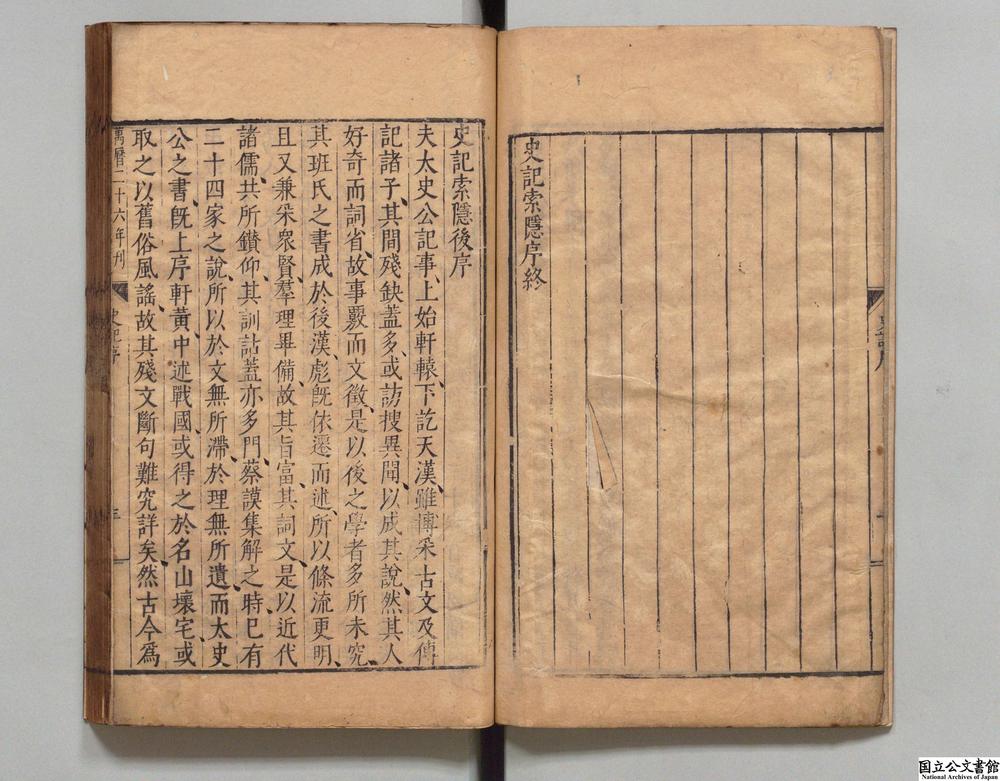 史記索隱序終
史記索隱後序
夫太史公記事、上始軒轅、下訖天漢、雖博采古文及傳
記諸子、其間殘缺蓋多、或訪搜異聞、以成其說、然其人
好奇而詞省、故事覈而文徵、是以後之學者多所未究、
其班氏之書、成於後漢、彪旣依遷而述、所以條流更明、
且又兼采衆賢、羣理畢備、故其旨富、其詞文、是以近代
諸儒、共所鑚仰、其訓詁蓋亦多門、蔡謨集解之時、已有
二十四家之說、所以於文無所滯、於理無所遺、而太史
公之書、旣上序軒黃、中述戰國、或得之於名山壞宅、或
取之以舊俗風謠、故其殘文斷句難究詳矣、然古今爲
萬曆二十六年刊
史記序
國立公文書館
National Archives of Japan